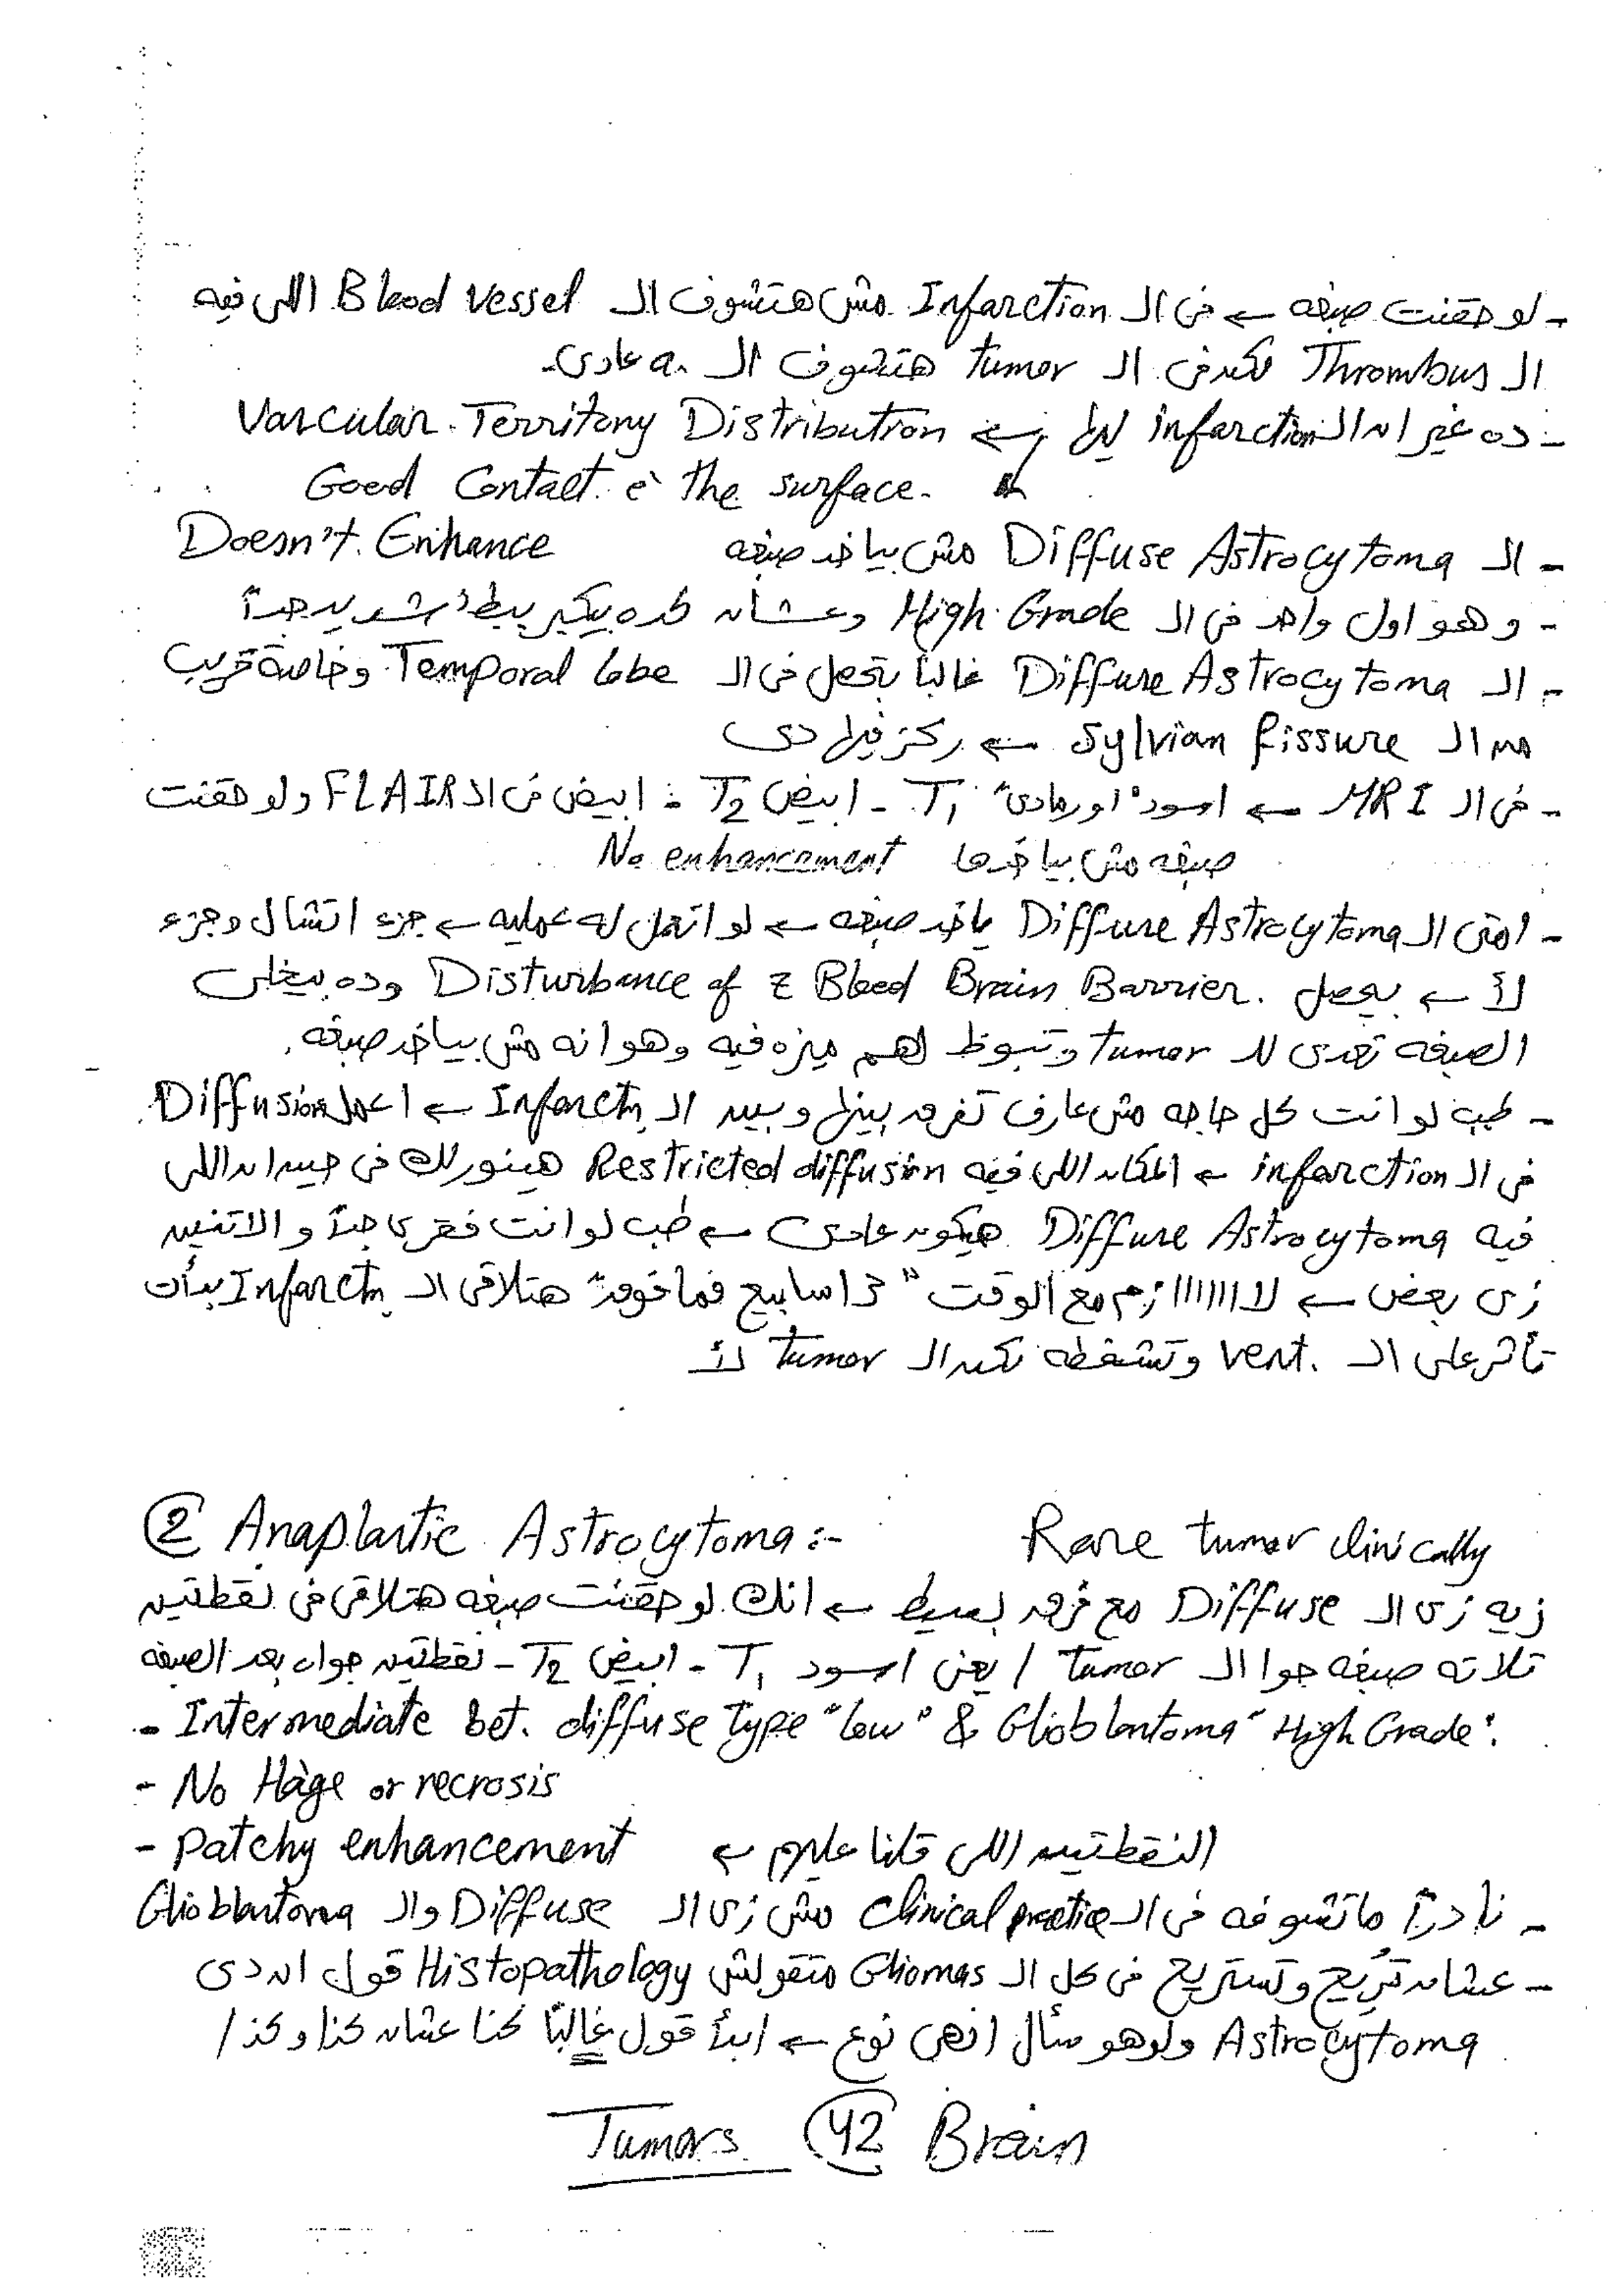 - لو حقنت صبغه ← فى الـ Infarction مش هتشوف الـ Blood vessel اللى فيه
الـ Thrombus لكن فى الـ tumor هتشوف الـ a. عادى.
- ده غير ان الـ infarction ليها ← Vascular Territory Distribution
Good Contact c̄ the surface.
- الـ Diffuse Astrocytoma مش بياخد صبغه Doesn't Enhance
- وهو اول واحد فى الـ High Grade وعشان كده بيكبر ببطء شديد جداً
- الـ Diffuse Astrocytoma غالباً بتحصل فى الـ Temporal lobe وخاصة قريب
من الـ Sylvian fissure ← ركز فيها دى
- فى الـ MRI ← اسود "او رمادى" T1 - ابيض T2 - ابيض فى الـ FLAIR ولو حقنت
صبغه مش بياخدها No enhancement
- امتى الـ Diffuse Astrocytoma ياخد صبغه ← لو اتعمل له عمليه ← جزء اتشال وجزء
لأ ← يحصل Disturbance of z Blood Brain Barrier. وده بيخلى
الصبغه تعدى للـ tumor وتبوظ اهم ميزه فيه وهو انه مش بياخد صبغه.
- طيب لو انت كل حاجه مش عارف تفرق بينها وبين الـ Infarctn ← اعمل Diffusion
فى الـ infarction ← المكان اللى فيه Restricted diffusion هينورلك فى حين ان اللى
فيه Diffuse Astrocytoma هيكون عادى ← طب لو انت فقرى جداً والاتنين
زى بعض ← لااااااازم مع الوقت "3 اسابيع فما فوق" هتلاقى الـ Infarctn بدأت
تأثر على الـ vent. وتشفطه لكن الـ tumor لأ
② Anaplastic Astrocytoma :- Rare tumor clinically
زيه زى الـ Diffuse مع فرق بسيط ← انك لو حقنت صبغه هتلاقى فى نقطتين
تلاته صبغه جوا الـ tumor / يعنى اسود T1 - ابيض T2 - نقطتين جواه بعد الصبغه
- Intermediate bet. diffuse type "low" & Glioblastoma "High Grade".
- No Hage or necrosis
- Patchy enhancement النقطتين اللى قلنا عليهم ←
- نادراً ماتشوفه فى الـ Clinical practice مش زى الـ Diffuse والـ Glioblastoma
- عشان تريح وتستريح فى كل الـ Gliomas متقولش Histopathology قول ان دى
Astrocytoma ولو هو سأل انهى نوع ← ابدأ قول غالباً كذا عشان كذا وكذا
Tumors 42 Brain